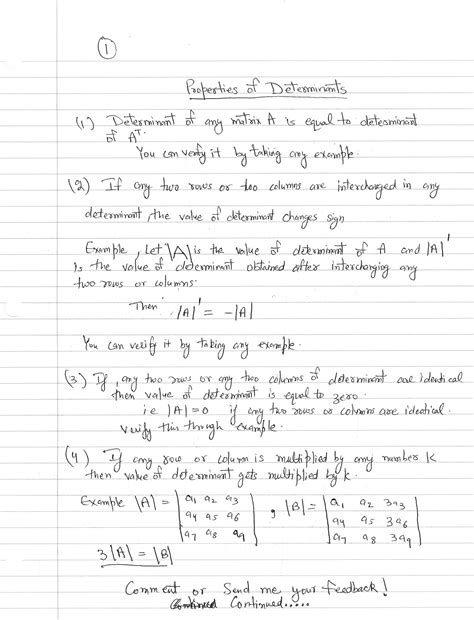 1
Properties of Determinants
(1) Determinant of any matrix A is equal to determinant
of Aᵀ.
You can verify it by taking any example.
(2) If any two rows or two columns are interchanged in any
determinant, the value of determinant changes sign
Example, Let |A| is the value of determinant of A and |A|'
is the value of determinant obtained after interchanging any
two rows or columns.
Then |A|' = -|A|
You can verify it by taking any example.
(3) If, any two rows or any two columns of determinant are identical
then value of determinant is equal to zero.
i.e |A|=0 if any two rows or columns are identical.
Verify this through example.
(4) If any row or column is multiplied by any number K
then value of determinant gets multiplied by K.
Example |A| = | a₁ a₂ a₃ | , |B| = | a₁ a₂ 3a₃ |
| a₄ a₅ a₆ | | a₄ a₅ 3a₆ |
| a₇ a₈ a₉ | | a₇ a₈ 3a₉ |
3|A| = |B|
Comment or Send me your feedback!
Continued.....